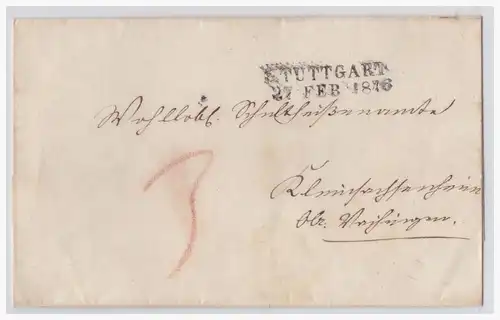 STUTTGART
27 FEB 1846
Wohllöbl. Schultheißenamte
3
Kleinsachsenheim
OA. Vaihingen.